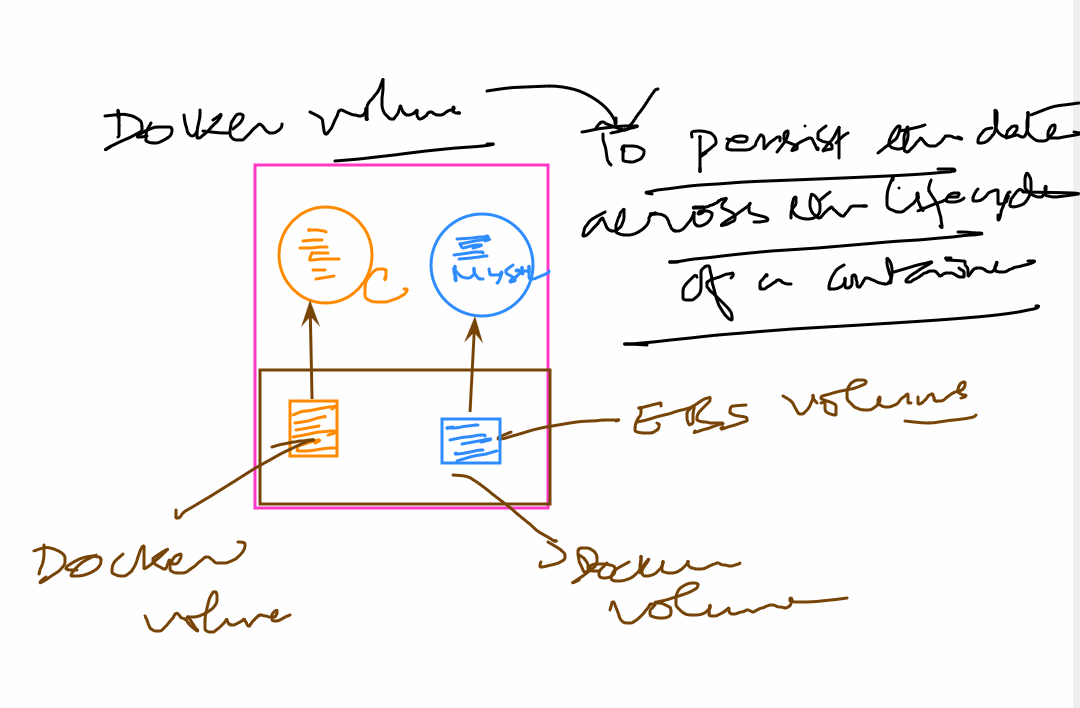 Docker volume
To persist the data
across the lifecycle
of a container
C
MySQL
EBS volumes
Docker
volume
Docker
volume